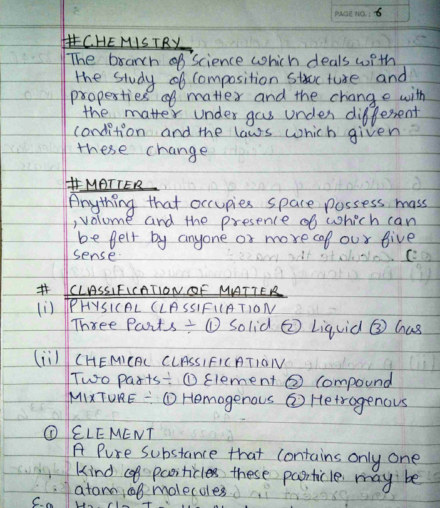 PAGE NO.: 6
# CHEMISTRY
The branch of Science which deals with
the study of composition structure and
properties of matter and the change with
the matter under gas under different
condition and the laws which given
these change
# MATTER
Anything that occupies space possess mass
, volume and the presence of which can
be felt by anyone or more of our five
sense.
# CLASSIFICATION OF MATTER
(i) PHYSICAL CLASSIFICATION
Three Parts ÷ ① Solid ② Liquid ③ Gas
(ii) CHEMICAL CLASSIFICATION
Two parts ÷ ① Element ② Compound
MIXTURE ÷ ① Homogenous ② Hetrogenous
① ELEMENT
A Pure Substance that contains only one
kind of particles these particle may be
atom, of molecules